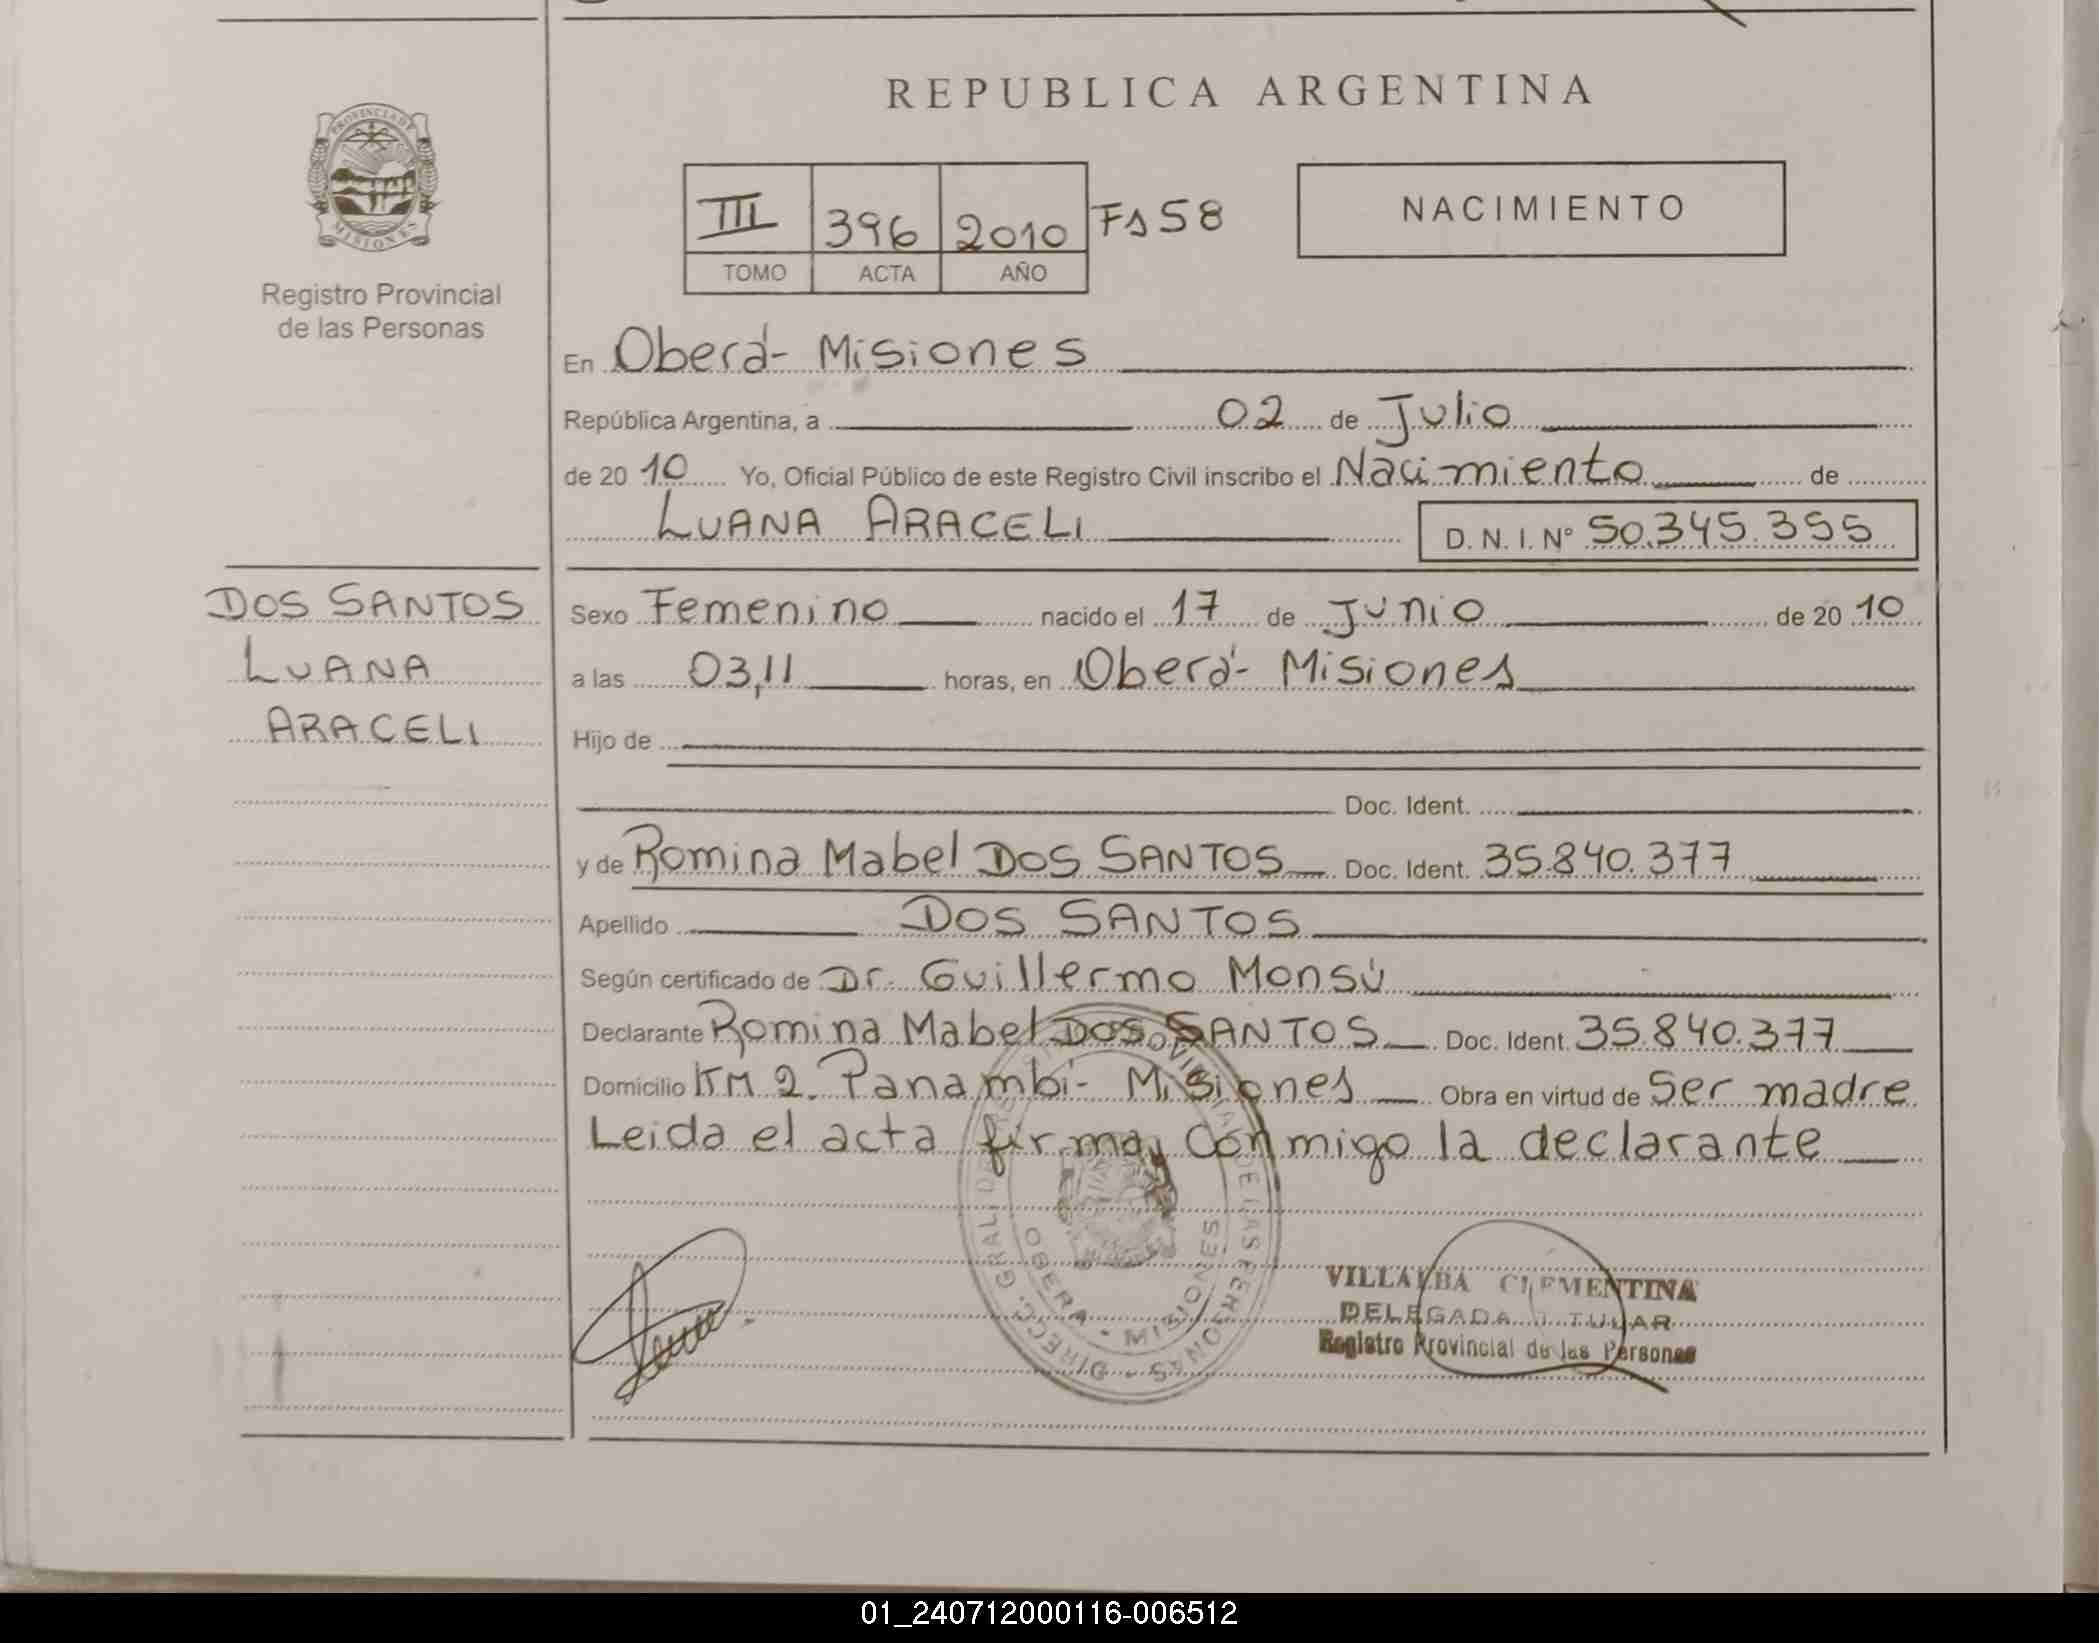 REPUBLICA ARGENTINA
PROVINCIA DE MISIONES
Registro Provincial
de las Personas
III 396 2010 Fs 58
TOMO ACTA AÑO
NACIMIENTO
En Oberá- Misiones
República Argentina, a 02 de Julio
de 20 10 Yo, Oficial Público de este Registro Civil inscribo el Nacimiento de
LUANA ARACELI D. N. I. Nº 50.345.355
DOS SANTOS
LUANA
ARACELI
Sexo Femenino nacido el 17 de Junio de 20 10
a las 03,11 horas, en Oberá- Misiones
Hijo de
Doc. Ident.
y de Romina Mabel DOS SANTOS Doc. Ident. 35.840.377
Apellido DOS SANTOS
Según certificado de Dr. Guillermo Monsú
Declarante Romina Mabel DOS SANTOS Doc. Ident. 35.840.377
Domicilio KM 2. Panambí- Misiones Obra en virtud de Ser madre
Leida el acta firma, conmigo la declarante
OBERA - MISIONES
VILLALBA CLEMENTINA
DELEGADA TITULAR
Registro Provincial de las Personas
01_240712000116-006512